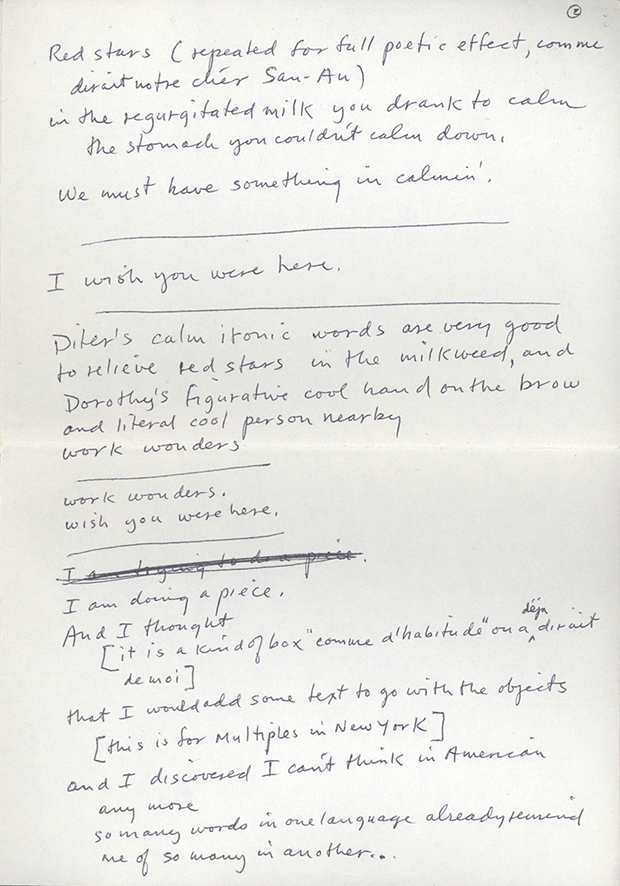 2
Red stars (repeated for full poetic effect, comme
dirait notre chér San-An)
in the regurgitated milk you drank to calm
the stomach you couldn't calm down.
We must have something in calmin'.
I wish you were here.
Diter's calm ironic words are very good
to relieve red stars in the milkweed, and
Dorothy's figurative cool hand on the brow
and literal cool person nearby
work wonders
work wonders.
wish you were here.
I am trying to do a piece.
I am doing a piece.
And I thought
[it is a kind of box "comme d'habitude" on a déja dirait
de moi]
that I would add some text to go with the objects
[this is for Multiples in New York]
and I discovered I can't think in American
any more
so many words in one language already remind
me of so many in another...